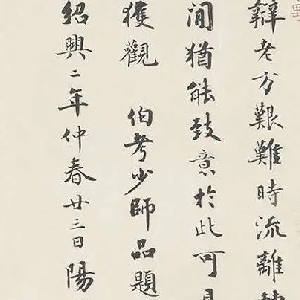 辯老方艱難時流離
間猶能鼓意於此可
獲觀 伯考少師品題
紹興二年仲春廿三日陽